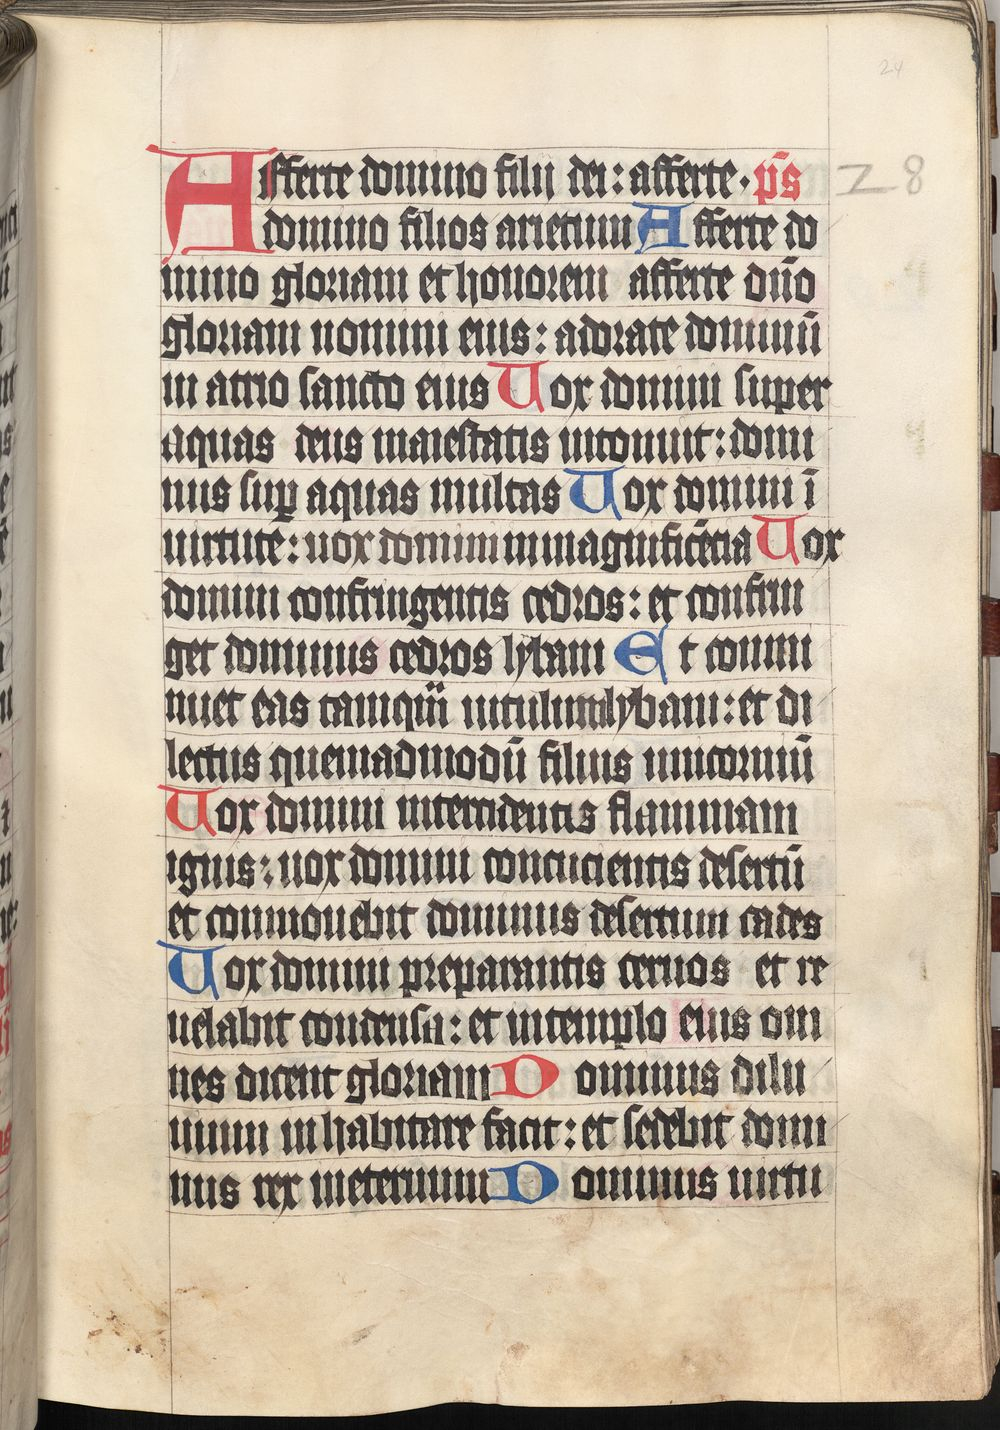 24
Afferte domino filij dei: afferte. p̄s 28
domino filios arietum Afferte do
mino gloriam et honorem afferte dn̄o
gloriam nomini eius: adorate dominū
in atrio sancto eius Uox domini super
aquas deus maiestatis intonuit: domi
nus suꝑ aquas multas Uox domini ī
uirtute: uox domini in magnificētia Uox
domini confringentis cedros: et confrin
get dominus cedros lybani Et comi
nuet eas tamqūa uitulum lybani: et di
lectus quemadmodū filius unicorniū
Uox domini intercidentis flammam
ignis: uox domini concucientis desertū
et commouebit dominus desertum cades
Uox domini preparantis ceruos et re
uelabit condensa: et in templo eius om
nes dicent gloriam Dominus dilu
uium inhabitare facit: et sedebit domi
nus rex in eternum Dominus uirtu